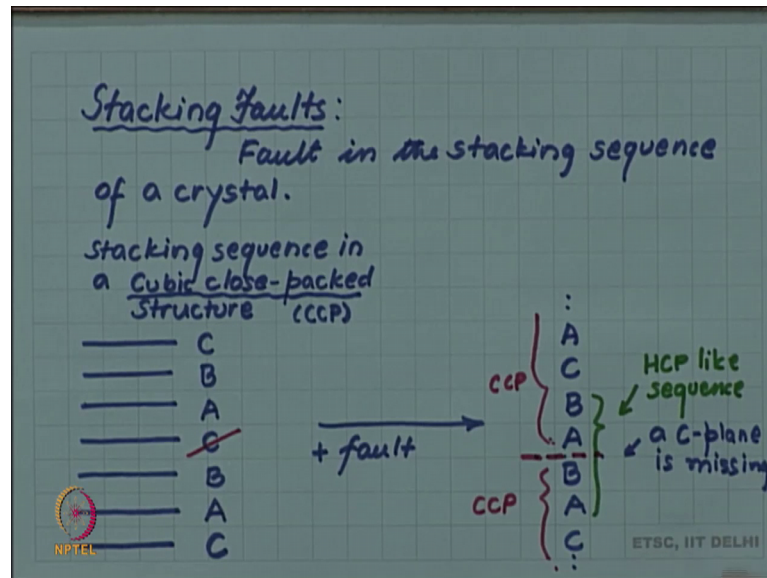 Stacking Faults:
Fault in the stacking sequence
of a crystal.
Stacking sequence in
a Cubic close-packed
Structure (CCP)
C
B
A
C
B
A
C
+ fault
:
A
C
B
A
B
A
C
:
CCP
CCP
HCP like
sequence
a C-plane
is missing
NPTEL
ETSC, IIT DELHI